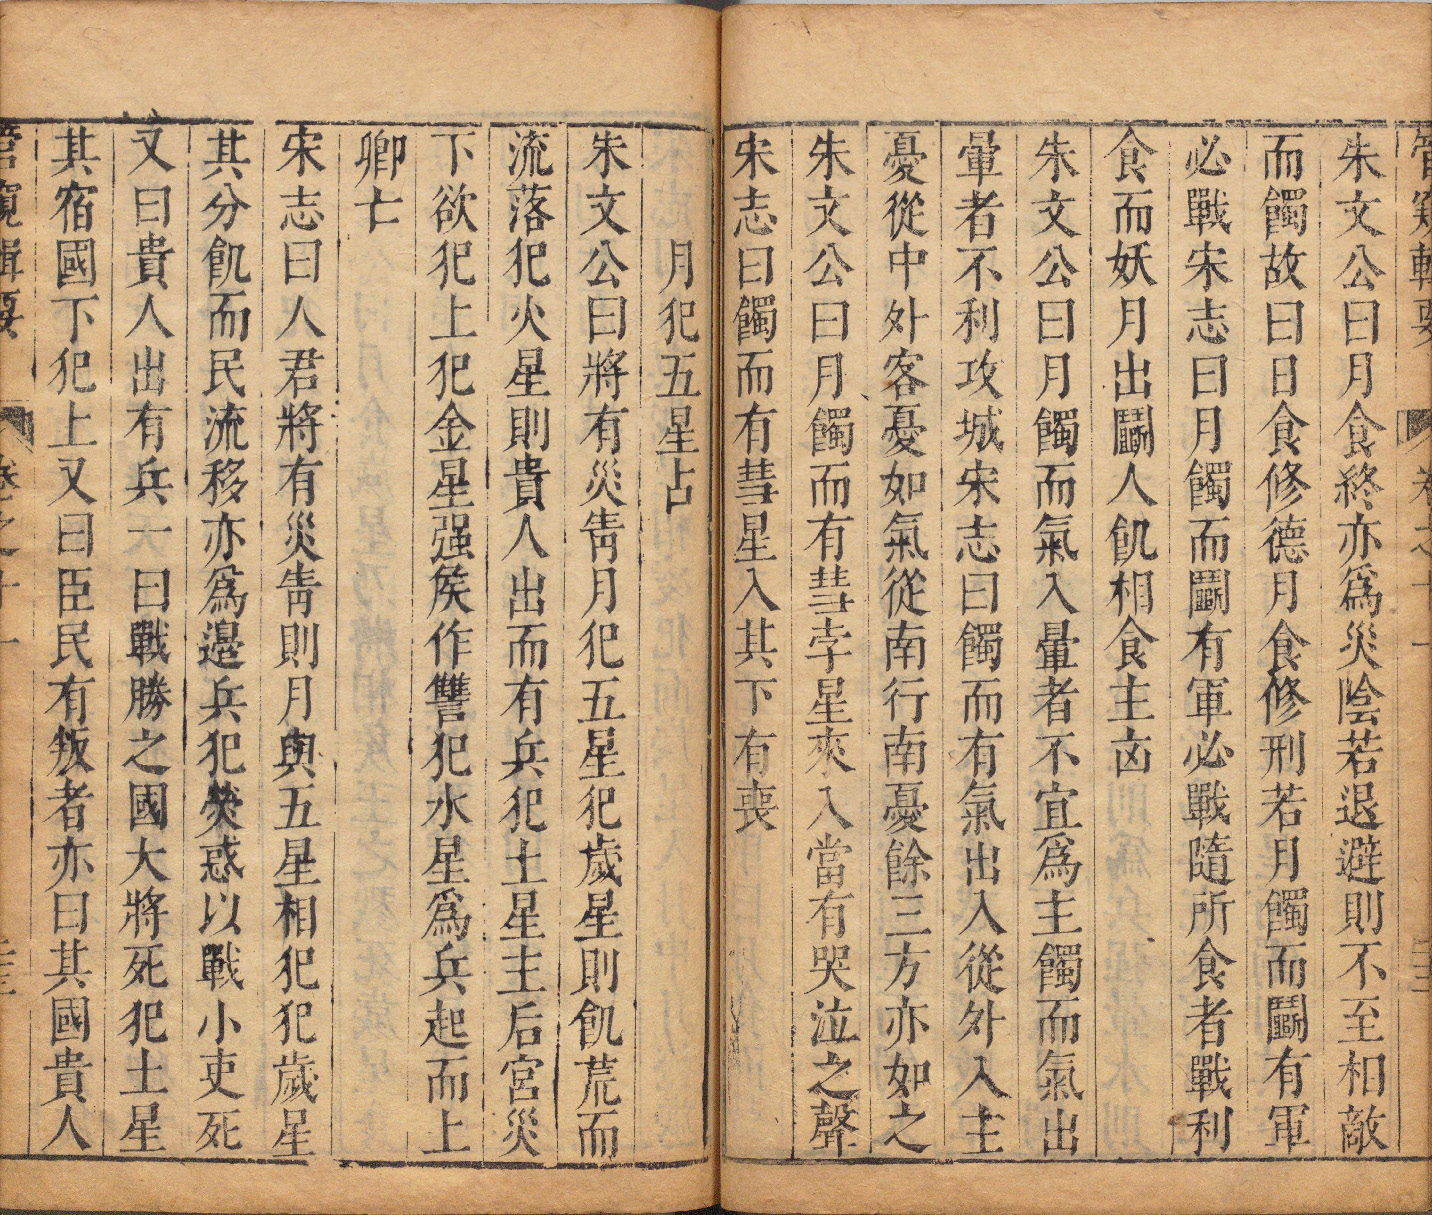 管窺輯要 卷之十一
朱文公曰月食終亦爲災陰若退避則不至相敵
而髑故曰日食修德月食修刑若月髑而鬬有軍
必戰宋志曰月髑而鬬有軍必戰隨所食者戰利
食而妖月出鬬人飢相食主凶
朱文公曰月髑而氣入暈者不宜爲主髑而氣出
暈者不利攻城宋志曰髑而有氣出入從外入主
憂從中外客憂如氣從南行南憂餘三方亦如之
朱文公曰月髑而有彗孛星來入當有哭泣之聲
宋志曰髑而有彗星入其下有喪
月犯五星占
朱文公曰將有災眚月犯五星犯歲星則飢荒而
流落犯火星則貴人出而有兵犯土星主后宮災
下欲犯上犯金星强侯作讐犯水星爲兵起而上
卿亡
宋志曰人君將有災眚則月與五星相犯犯歲星
其分飢而民流移亦爲邊兵犯熒惑以戰小吏死
又曰貴人出有兵一曰戰勝之國大將死犯土星
其宿國下犯上又曰臣民有叛者亦曰其國貴人
管窺輯要 卷之十一